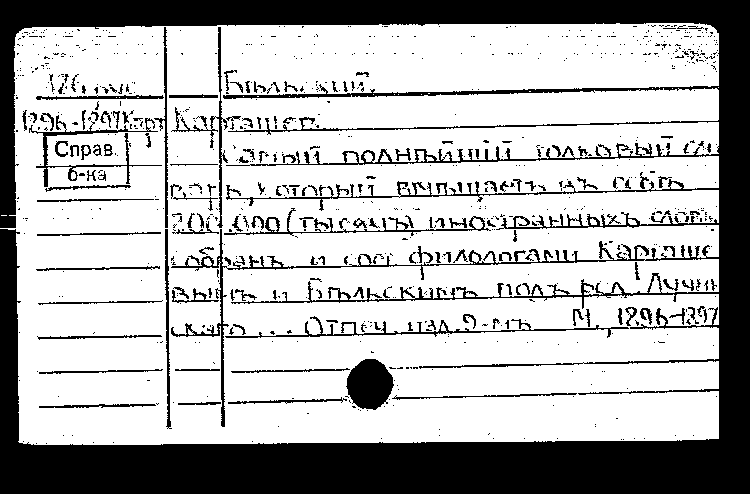 Бѣльский.
1896-1897 Карт Карташев.
Справ. б-ка
Самый полнѣйшій толковый сло
варь, который вмѣщаетъ въ себѣ
200.000 (тысячъ) иностранныхъ словъ.
Собранъ и сост. филологами Карташе
вымъ и Бѣльскимъ подъ ред. Лучин
скаго... Отпеч. изд. 9-мъ М., 1896-1897